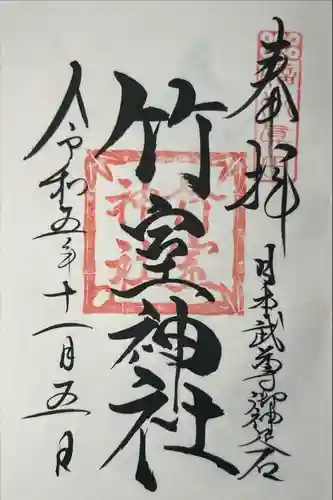 奉拝
日本武尊御神足石
竹室神社
令和五年十一月五日